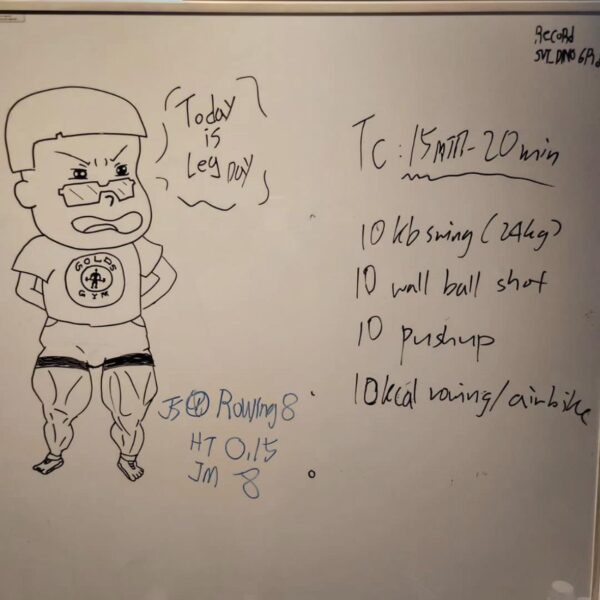 Record
Today
is
Leg DAY
GOLDS
GYM
Tc : 15min - 20min
10 kb swing (24kg)
10 wall ball shot
10 pushup
10 kcal rowing / airbike
Rowing 8
HT 0.15
JM 8